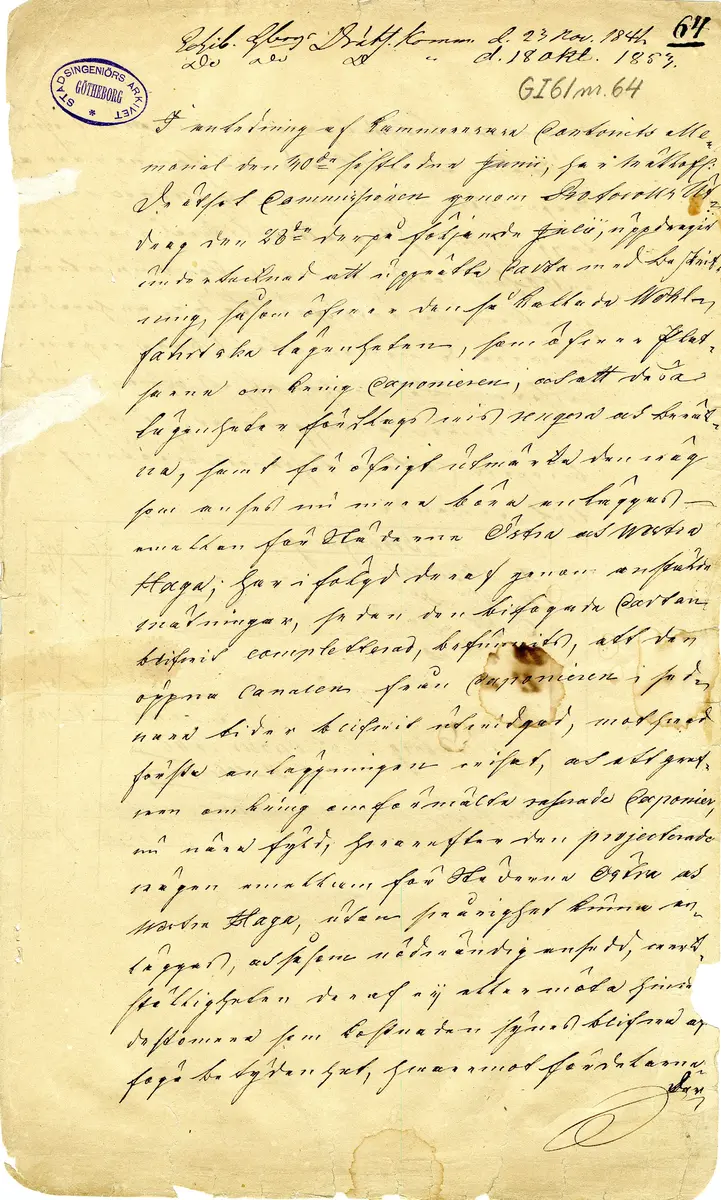 64
Exhib. Gborgs Drätts. Komm. d. 23 Nov. 1844
Do Do D " d. 18 Okt. 1853.
STADSINGENIÖRS ARKIVET
GÖTHEBORG
GI61 nr. 64
I anledning af Kammereraren Me-
morial den 30de sistledne Junii, har
Drätsel Commissionen genom Protocolls Ut-
drag den 28de derpå följande Julii, uppdragit
undertecknad att upprätta Carta med beskrif-
ning, såsom öfver den så kallade Wohl-
fahrtska lägenheten, som öfver Plat-
serne omkring Caponieren, och att dessa
lägenheter förslagsvis reglera och beräk-
na, samt för öfrigt utmärka den wäg
som anses nu mera böra anläggas
emellan för Städerne Östra och Westra
Haga; har i följd deraf genom anstälde
mätningar, sedan den bifogade Cartan
blifvit completterad, befunnits, att den
öppna Canalen från Caponieren i sed-
nare tider blifvit utvidgad, mot hvad
första anläggningen visat, och att graf-
ven omkring omförmälte raserade Caponier,
nu nära fyld, hvarefter den projecterade
wägen emellan för Städerne Östra och
Westra Haga, utan svårighet kunna an-
läggas, och såsom nödvändig ansedd, verk-
ställigheten deraf ej eller möta hinder
destomera som kostnaden synes blifva af
föga betydenhet, hvaremot fördelarne
der